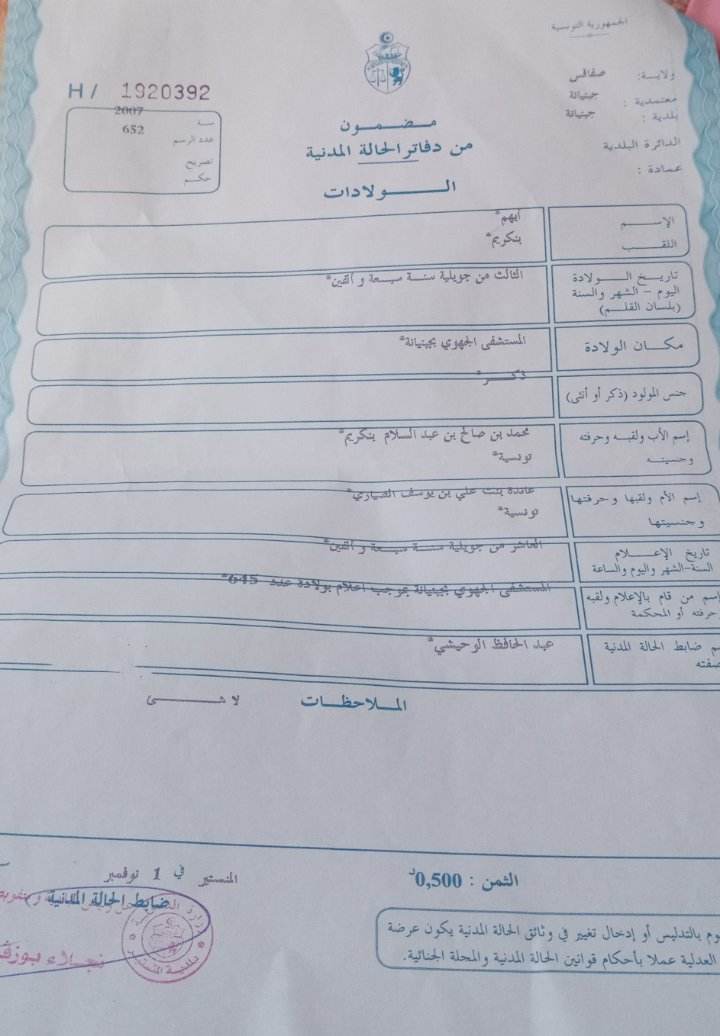 الجمهورية التونسية
ولاية: صفاقس
معتمدية : جبنيانة
بلدية : جبنيانة
الدائرة البلدية
عمادة :
H / 1920392
سنة 2007
عدد الرسم 652
تصريح
حكم
مضمون
من دفاتر الحالة المدنية
الولادات
الإسم أيهم*
اللقب بنكريم*
تاريخ الولادة الثالث من جويلية سنة سبعة و ألفين*
اليوم - الشهر والسنة
(بلسان القلم)
مكان الولادة المستشفى الجهوي بجبنيانة*
جنس المولود (ذكر أو أنثى) ذكر*
إسم الأب ولقبه وحرفته محمد بن صالح بن عبد السلام بنكريم*
وجنسيته تونسية*
إسم الأم ولقبها وحرفتها عائدة بنت علي بن يوسف
وجنسيتها تونسية*
تاريخ الإعلام العاشر من جويلية سنة سبعة و ألفين*
السنة-الشهر واليوم والساعة
إسم من قام بالإعلام ولقبه المستشفى الجهوي بجبنيانة بموجب اعلام بولادة عدد 645*
حرفته أو المحكمة
ضابط الحالة المدنية عبد الحافظ الوحيشي*
الملاحظات لا شئ
الثمن : 0,500د
المنستير في 1 نوفمبر
ضابط الحالة المدنية
نجلاء
بالتدليس أو إدخال تغيير في وثائق الحالة المدنية يكون عرضة
العدلية عملا بأحكام قوانين الحالة المدنية والمجلة الجنائية.